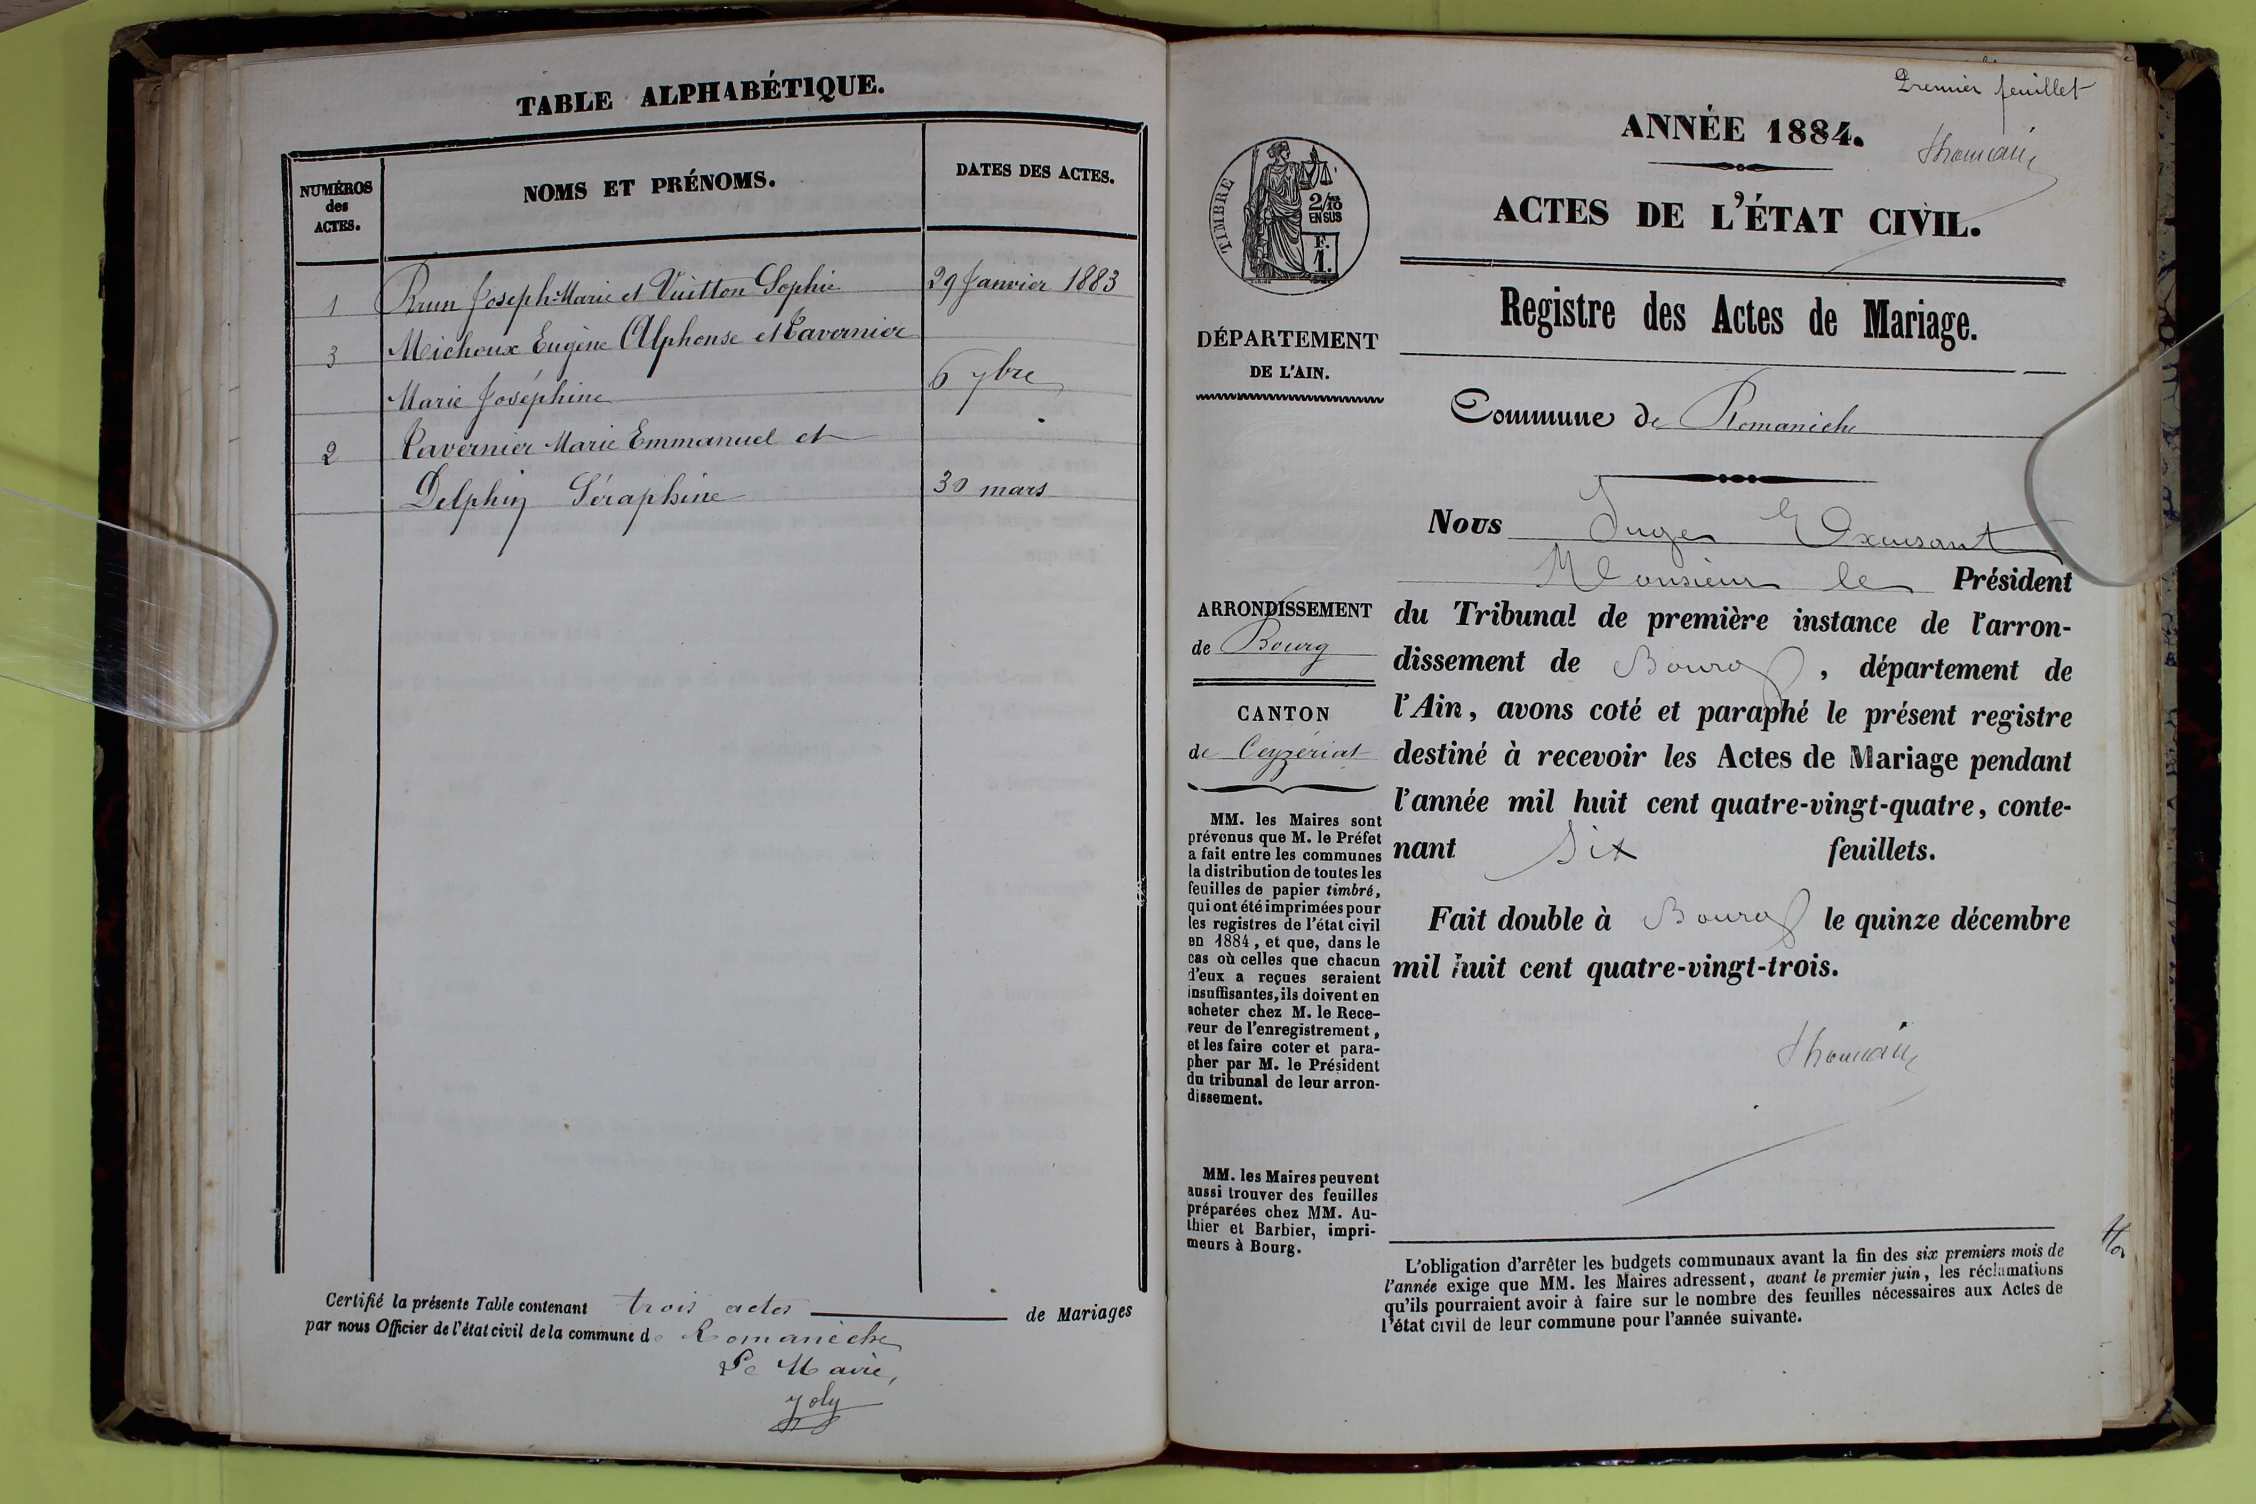 TABLE ALPHABÉTIQUE.
NUMÉROS
des
ACTES.
NOMS ET PRÉNOMS.
DATES DES ACTES.
1 Brun Joseph-Marie et Vuitton Sophie 29 Janvier 1883
3 Michoux Eugène Alphonse et Tavernier
Marie Joséphine 6 7bre
2 Tavernier Marie Emmanuel et
Delphin Séraphine 30 mars
Certifié la présente Table contenant trois actes de Mariages
par nous Officier de l'état civil de la commune de Romanèche
Le Maire,
Joly
Premier feuillet
ANNÉE 1884.
ACTES DE L'ÉTAT CIVIL.
Registre des Actes de Mariage.
Commune de Romanèche
TIMBRE
2/10 EN SUS
F.
1.
DÉPARTEMENT
DE L'AIN.
ARRONDISSEMENT
de Bourg
CANTON
de Ceyzériat
MM. les Maires sont
prévenus que M. le Préfet
a fait entre les communes
la distribution de toutes les
feuilles de papier timbré,
qui ont été imprimées pour
les registres de l'état civil
en 1884, et que, dans le
cas où celles que chacun
d'eux a reçues seraient
insuffisantes, ils doivent en
acheter chez M. le Rece-
veur de l'enregistrement,
et les faire coter et para-
pher par M. le Président
du tribunal de leur arron-
dissement.
MM. les Maires peuvent
aussi trouver des feuilles
préparées chez MM. Au-
thier et Barbier, impri-
meurs à Bourg.
Nous Juge Excusant
Monsieur le Président
du Tribunal de première instance de l'arron-
dissement de Bourg, département de
l'Ain, avons coté et paraphé le présent registre
destiné à recevoir les Actes de Mariage pendant
l'année mil huit cent quatre-vingt-quatre, conte-
nant Six feuillets.
Fait double à Bourg le quinze décembre
mil huit cent quatre-vingt-trois.
L'obligation d'arrêter les budgets communaux avant la fin des six premiers mois de
l'année exige que MM. les Maires adressent, avant le premier juin, les réclamations
qu'ils pourraient avoir à faire sur le nombre des feuilles nécessaires aux Actes de
l'état civil de leur commune pour l'année suivante.